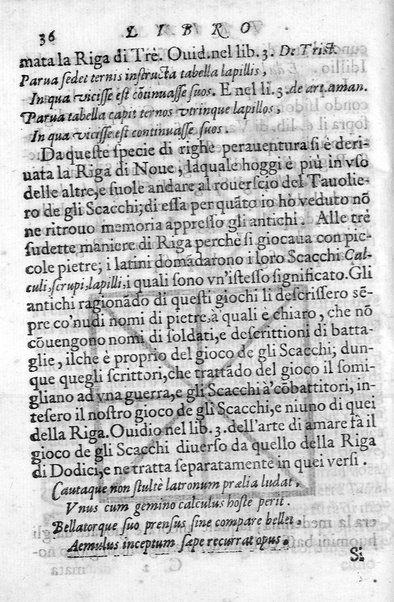 36 LIBRO
mata la Riga di Tre. Ouid. nel lib. 3. De Trist.
Parua sedet ternis instructa tabella lapillis,
In qua vicisse est cõtinuasse suos. E nel li. 3. de art. aman.
Parua tabella capit ternos vtrinque lapillos,
In qua vicisse est continuasse suos.
Da queste specie di righe perauentura si è deri-
uata la Riga di Noue, laquale hoggi è più in vso
delle altre, e suole andare al rouerscio del Tauolie-
ro de gli Scacchi; di essa per quāto io hò veduto nō
ne ritrouo memoria appresso gli antichi. Alle trè
sudette maniere di Riga perche si giocaua con pic-
cole pietre; i latini domādarono i loro Scacchi Cal-
culi, scrupi, lapilli, i quali sono vn'istesso significato. Gli
antichi ragionādo di questi giochi li descrissero sẽ-
pre co'nudi nomi di pietre, a quali è chiaro, che nō
cōuengono nomi di soldati, e descrittioni di batta-
glie, ilche è proprio del gioco de gli Scacchi; dun-
que quegli scrittori, che trattādo del gioco il somi-
gliano ad vna guerra, e gli Scacchi à cōbattitori, in-
tesero il nostro gioco de gli Scacchi, e niuno di quei
della Riga. Ouidio nel lib. 3. dell'arte di amare fà il
gioco de gli Scacchi diuerso da quello della Riga
di Dodici, e ne tratta separatamente in quei versi.
Cautaque non stultè latronum prælia ludat,
Vnus cum gemino calculus hoste perit.
Bellatorque suo prensus sine compare bellet,
Aemulus inceptum sæpe recurrat opus.
Si